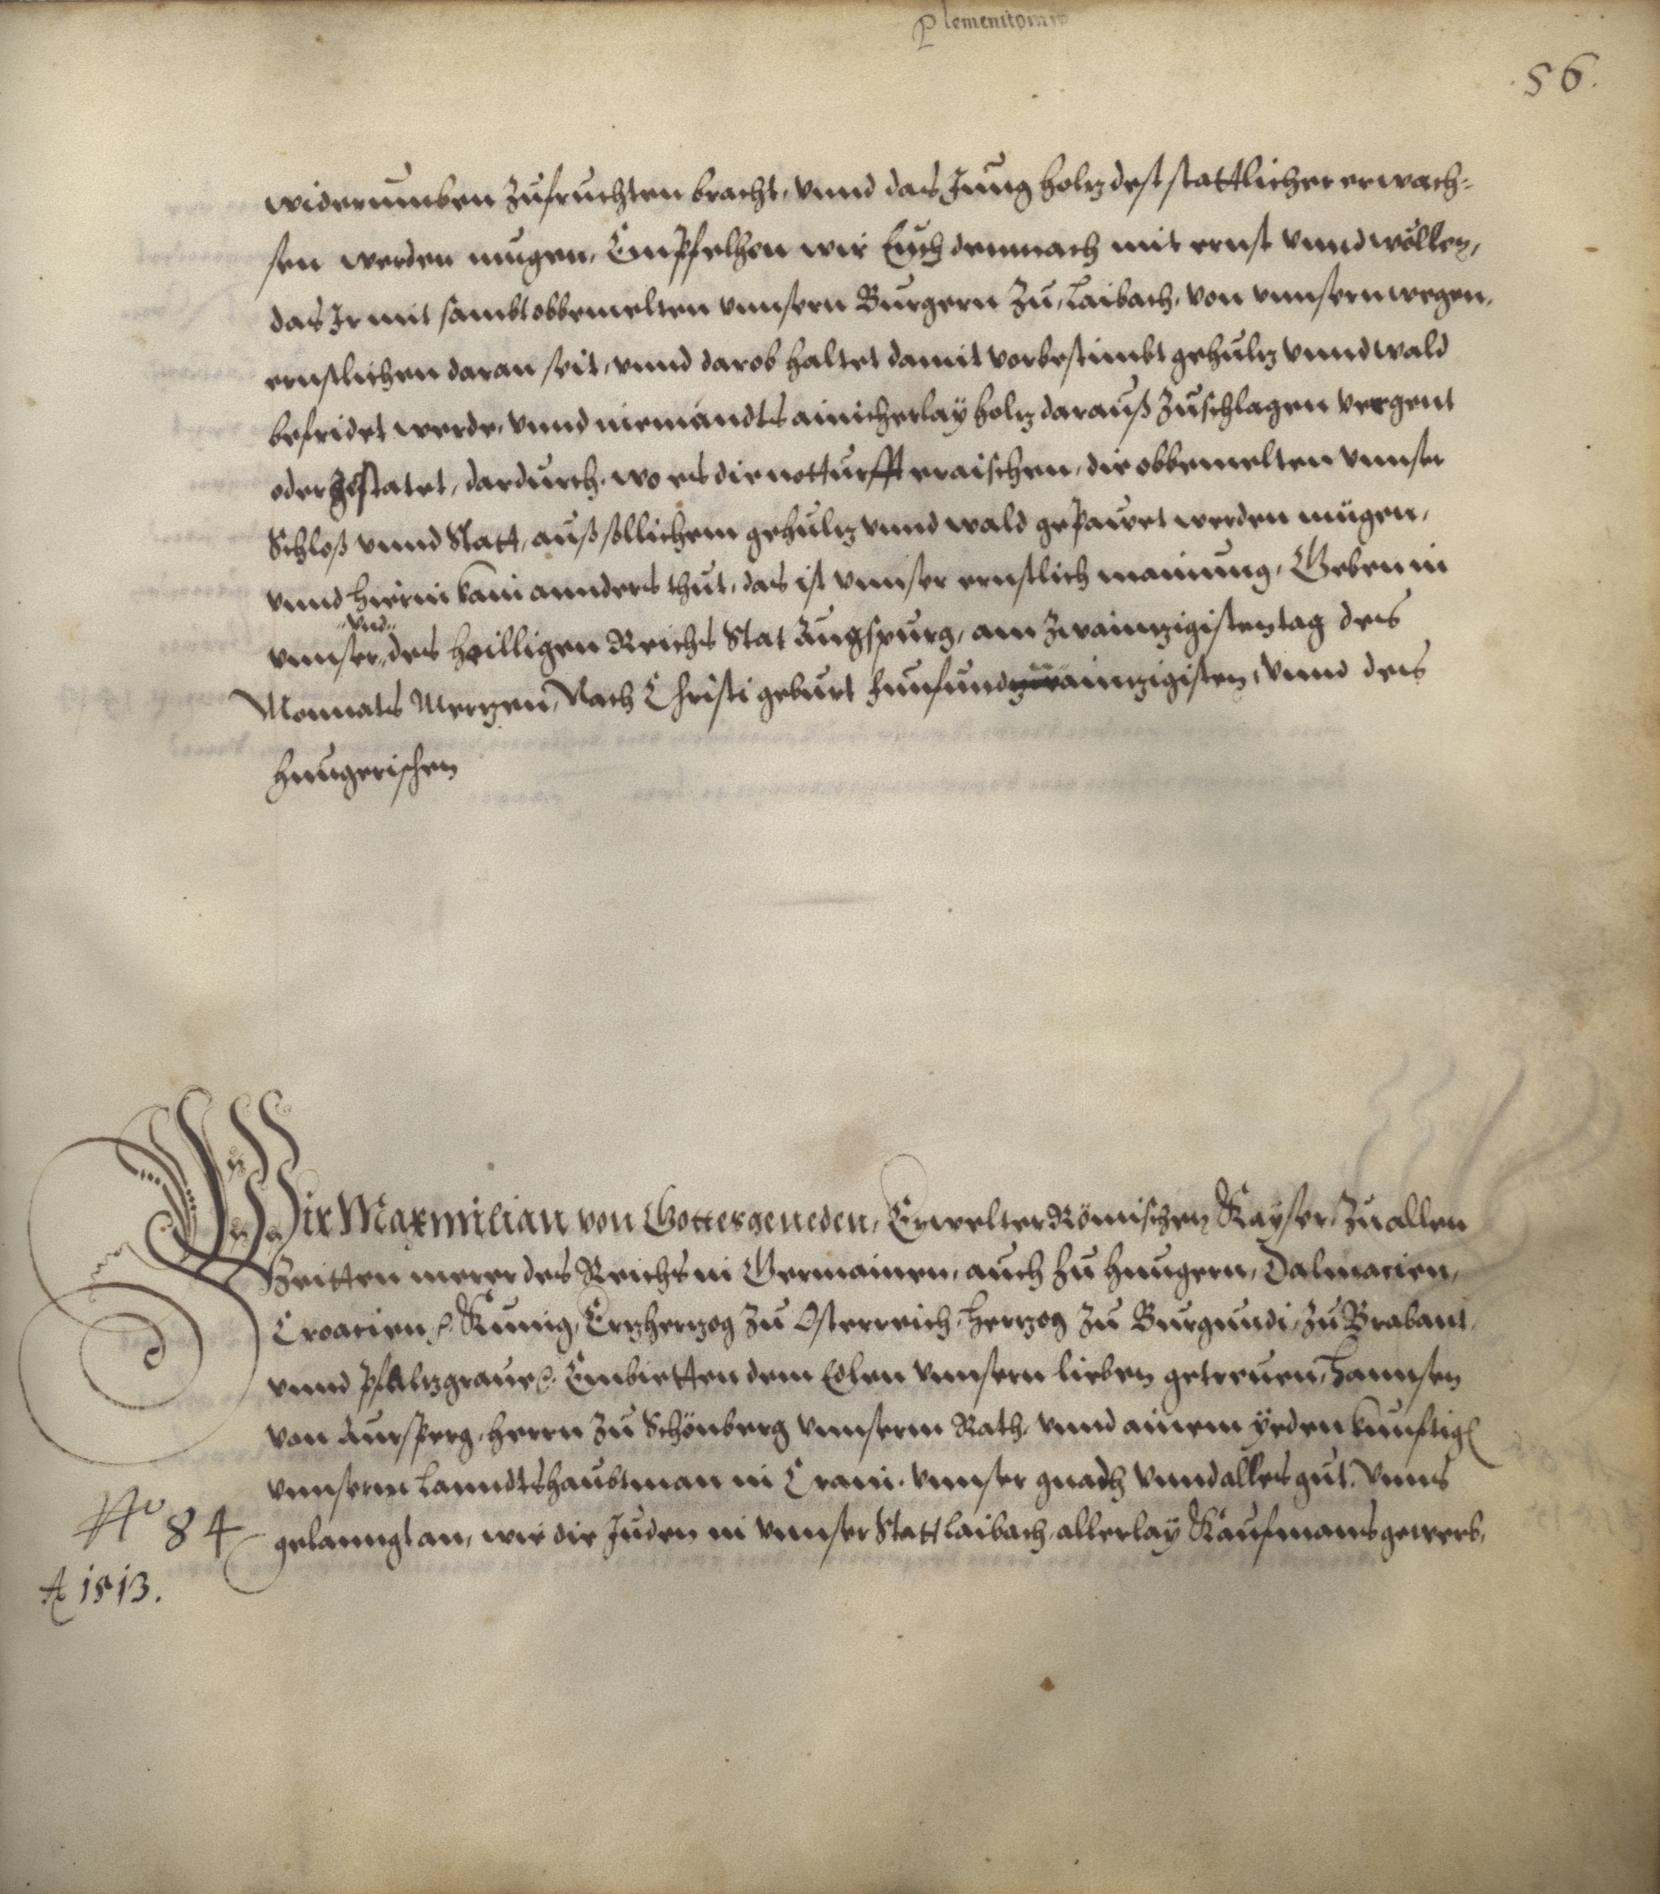 Plementom
.56.
widerumben zufruchten bracht, vnnd das Jung holtz dest stattlicher erwach=
sen werden mugen, Empfelhen wir Euch demnach mit ernst vnnd wöllen,
das Ir mit sambt obbemelten vnnsern Burgern zu Laibach, von vnnsern wegen,
ernstlichen daran seit, vnnd darob haltet damit vorbestimbt gehultz vnnd wald
befridet werde, vnnd niemandts ainicherlaÿ holtz darauß zuschlagen vergent
oder gestatet, dardurch, wo es die notturfft eraischen, die obbemelten vnnser
Schloß vnnd Statt, auß sollichem gehultz vnnd wald gepawet werden mügen,
vnnd hierin kain annders thut, das ist vnnser ernstlich mainung, Geben in
vnnser, des heilligen Reichs Stat Augspurg, am zwaintzigisten tag des
vnd
Monnats Mertzen, Nach Christi geburt funfundzwaintzigisten, vnnd des
Hungerischen
Wir Maxmilian von Gottes geneden, Erwelter Römischen Kayser, zu allen
Zeitten merer des Reichs in Germainen, auch zu Hungern, Dalmacien,
Croacien &c. Kunig, Ertzhertzog zu Osterreich, Hertzog zu Burgundi, zu Brabant,
vnnd Pfaltzgraue &c. Embietten dem Edlen vnnsern lieben getreuen, Hannsen
von Aursperg, Herrn zu Schönberg vnnserm Rath, vnnd ainem yeden kunftigen
vnnserm Lanndtshaubtman in Crain, vnnser gnad vnnd alles gut. Vnns
gelanngt an, wie die Juden in vnnser Statt Laibach, allerlaÿ Kaufmansgewerb,
No 84
A 1513.